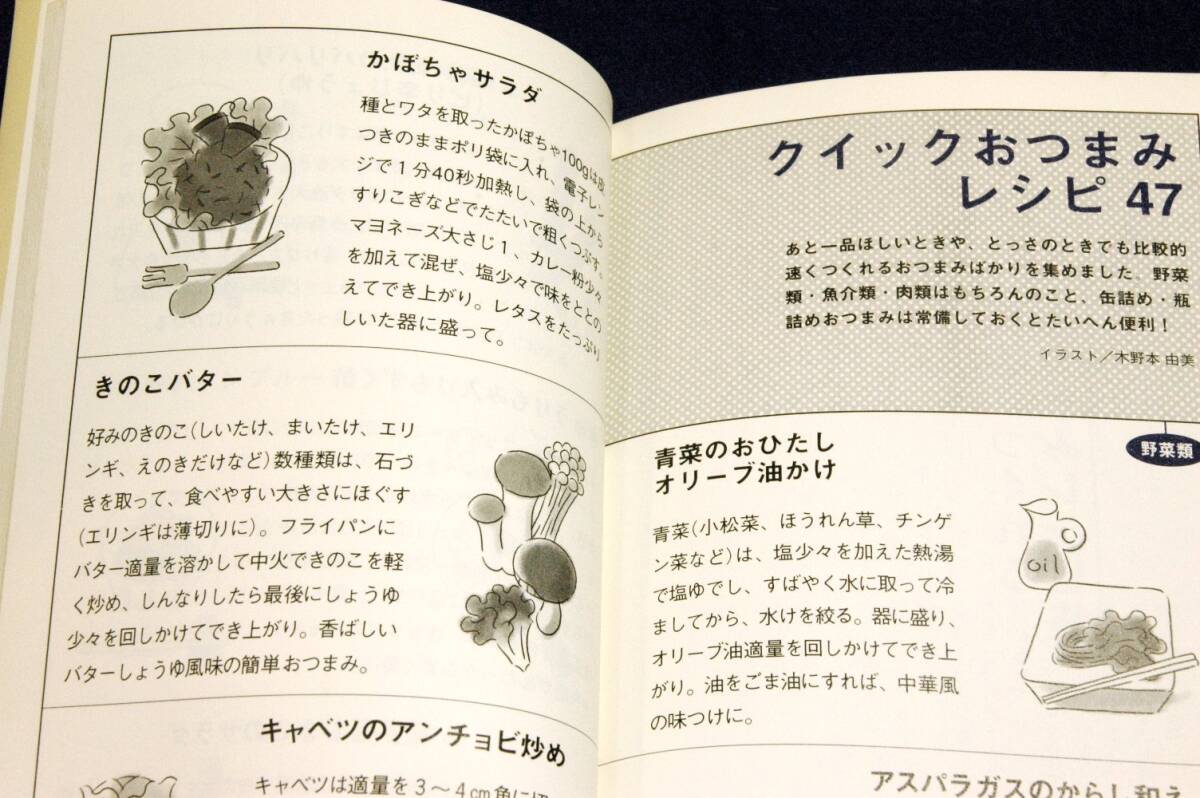 かぼちゃサラダ
種とワタを取ったかぼちゃ100gは皮
つきのままポリ袋に入れ、電子レン
ジで1分40秒加熱し、袋の上から
すりこぎなどでたたいで粗くつぶす。
マヨネーズ大さじ1、カレー粉少々
を加えて混ぜ、塩少々で味をととの
えてでき上がり。レタスをたっぷり
しいた器に盛って。
きのこバター
好みのきのこ(しいたけ、まいたけ、エリ
ンギ、えのきだけなど)数種類は、石づ
きを取って、食べやすい大きさにほぐす
(エリンギは薄切りに)。フライパンに
バター適量を溶かして中火できのこを軽
く炒め、しんなりしたら最後にしょうゆ
少々を回しかけてでき上がり。香ばしい
バターしょうゆ風味の簡単おつまみ。
キャベツのアンチョビ炒め
キャベツは適量を3〜4cm角に
クイックおつまみ
レシピ47
あと一品ほしいときや、とっさのときでも比較的
速くつくれるおつまみばかりを集めました。野菜
類・魚介類・肉類はもちろんのこと、缶詰め・瓶
詰めおつまみは常備しておくとたいへん便利!
イラスト/木野本 由美
野菜類
青菜のおひたし
オリーブ油かけ
青菜(小松菜、ほうれん草、チンゲ
ン菜など)は、塩少々を加えた熱湯
で塩ゆでし、すばやく水に取って冷
ましてから、水けを絞る。器に盛り、
オリーブ油適量を回しかけてでき上
がり。油をごま油にすれば、中華風
の味つけに。
oil
アスパラガスのからし和え